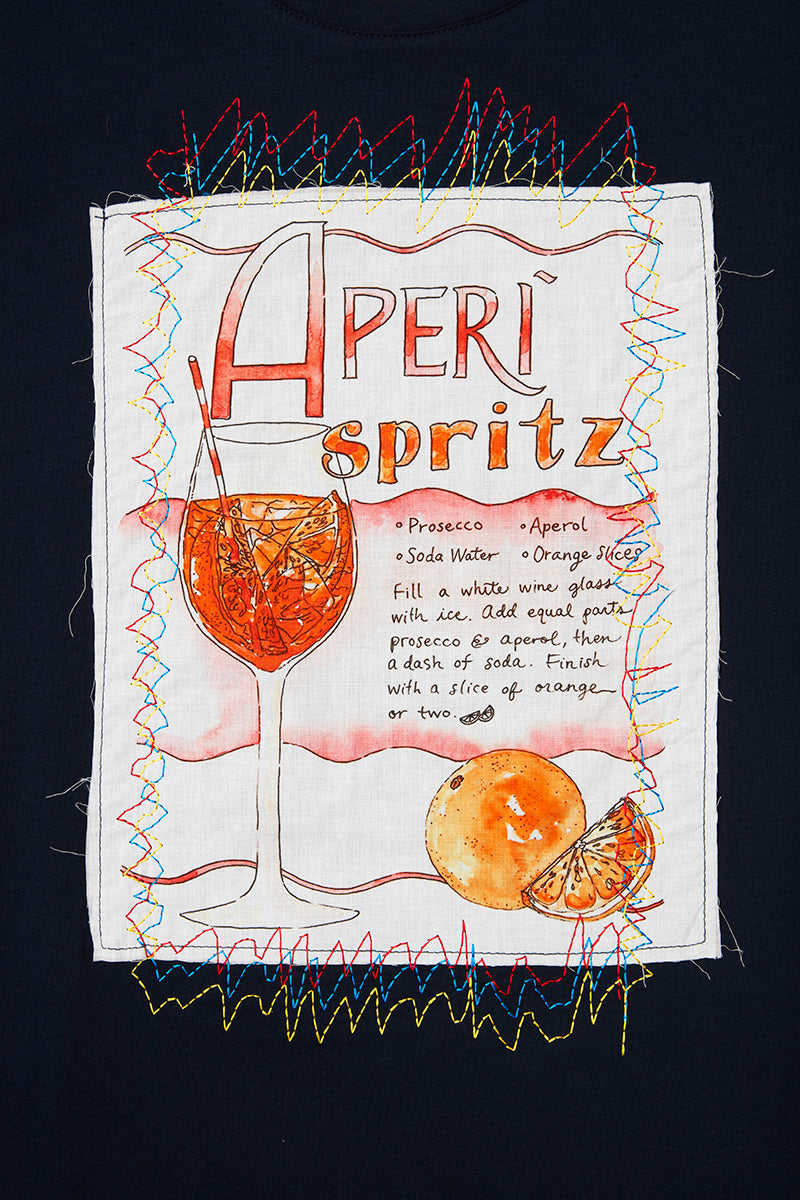 APERÌ
spritz
◦ Prosecco ◦ Aperol
◦ Soda Water ◦ Orange Slices
Fill a white wine glass
with ice. Add equal parts
prosecco & aperol, then
a dash of soda. Finish
with a slice of orange
or two.